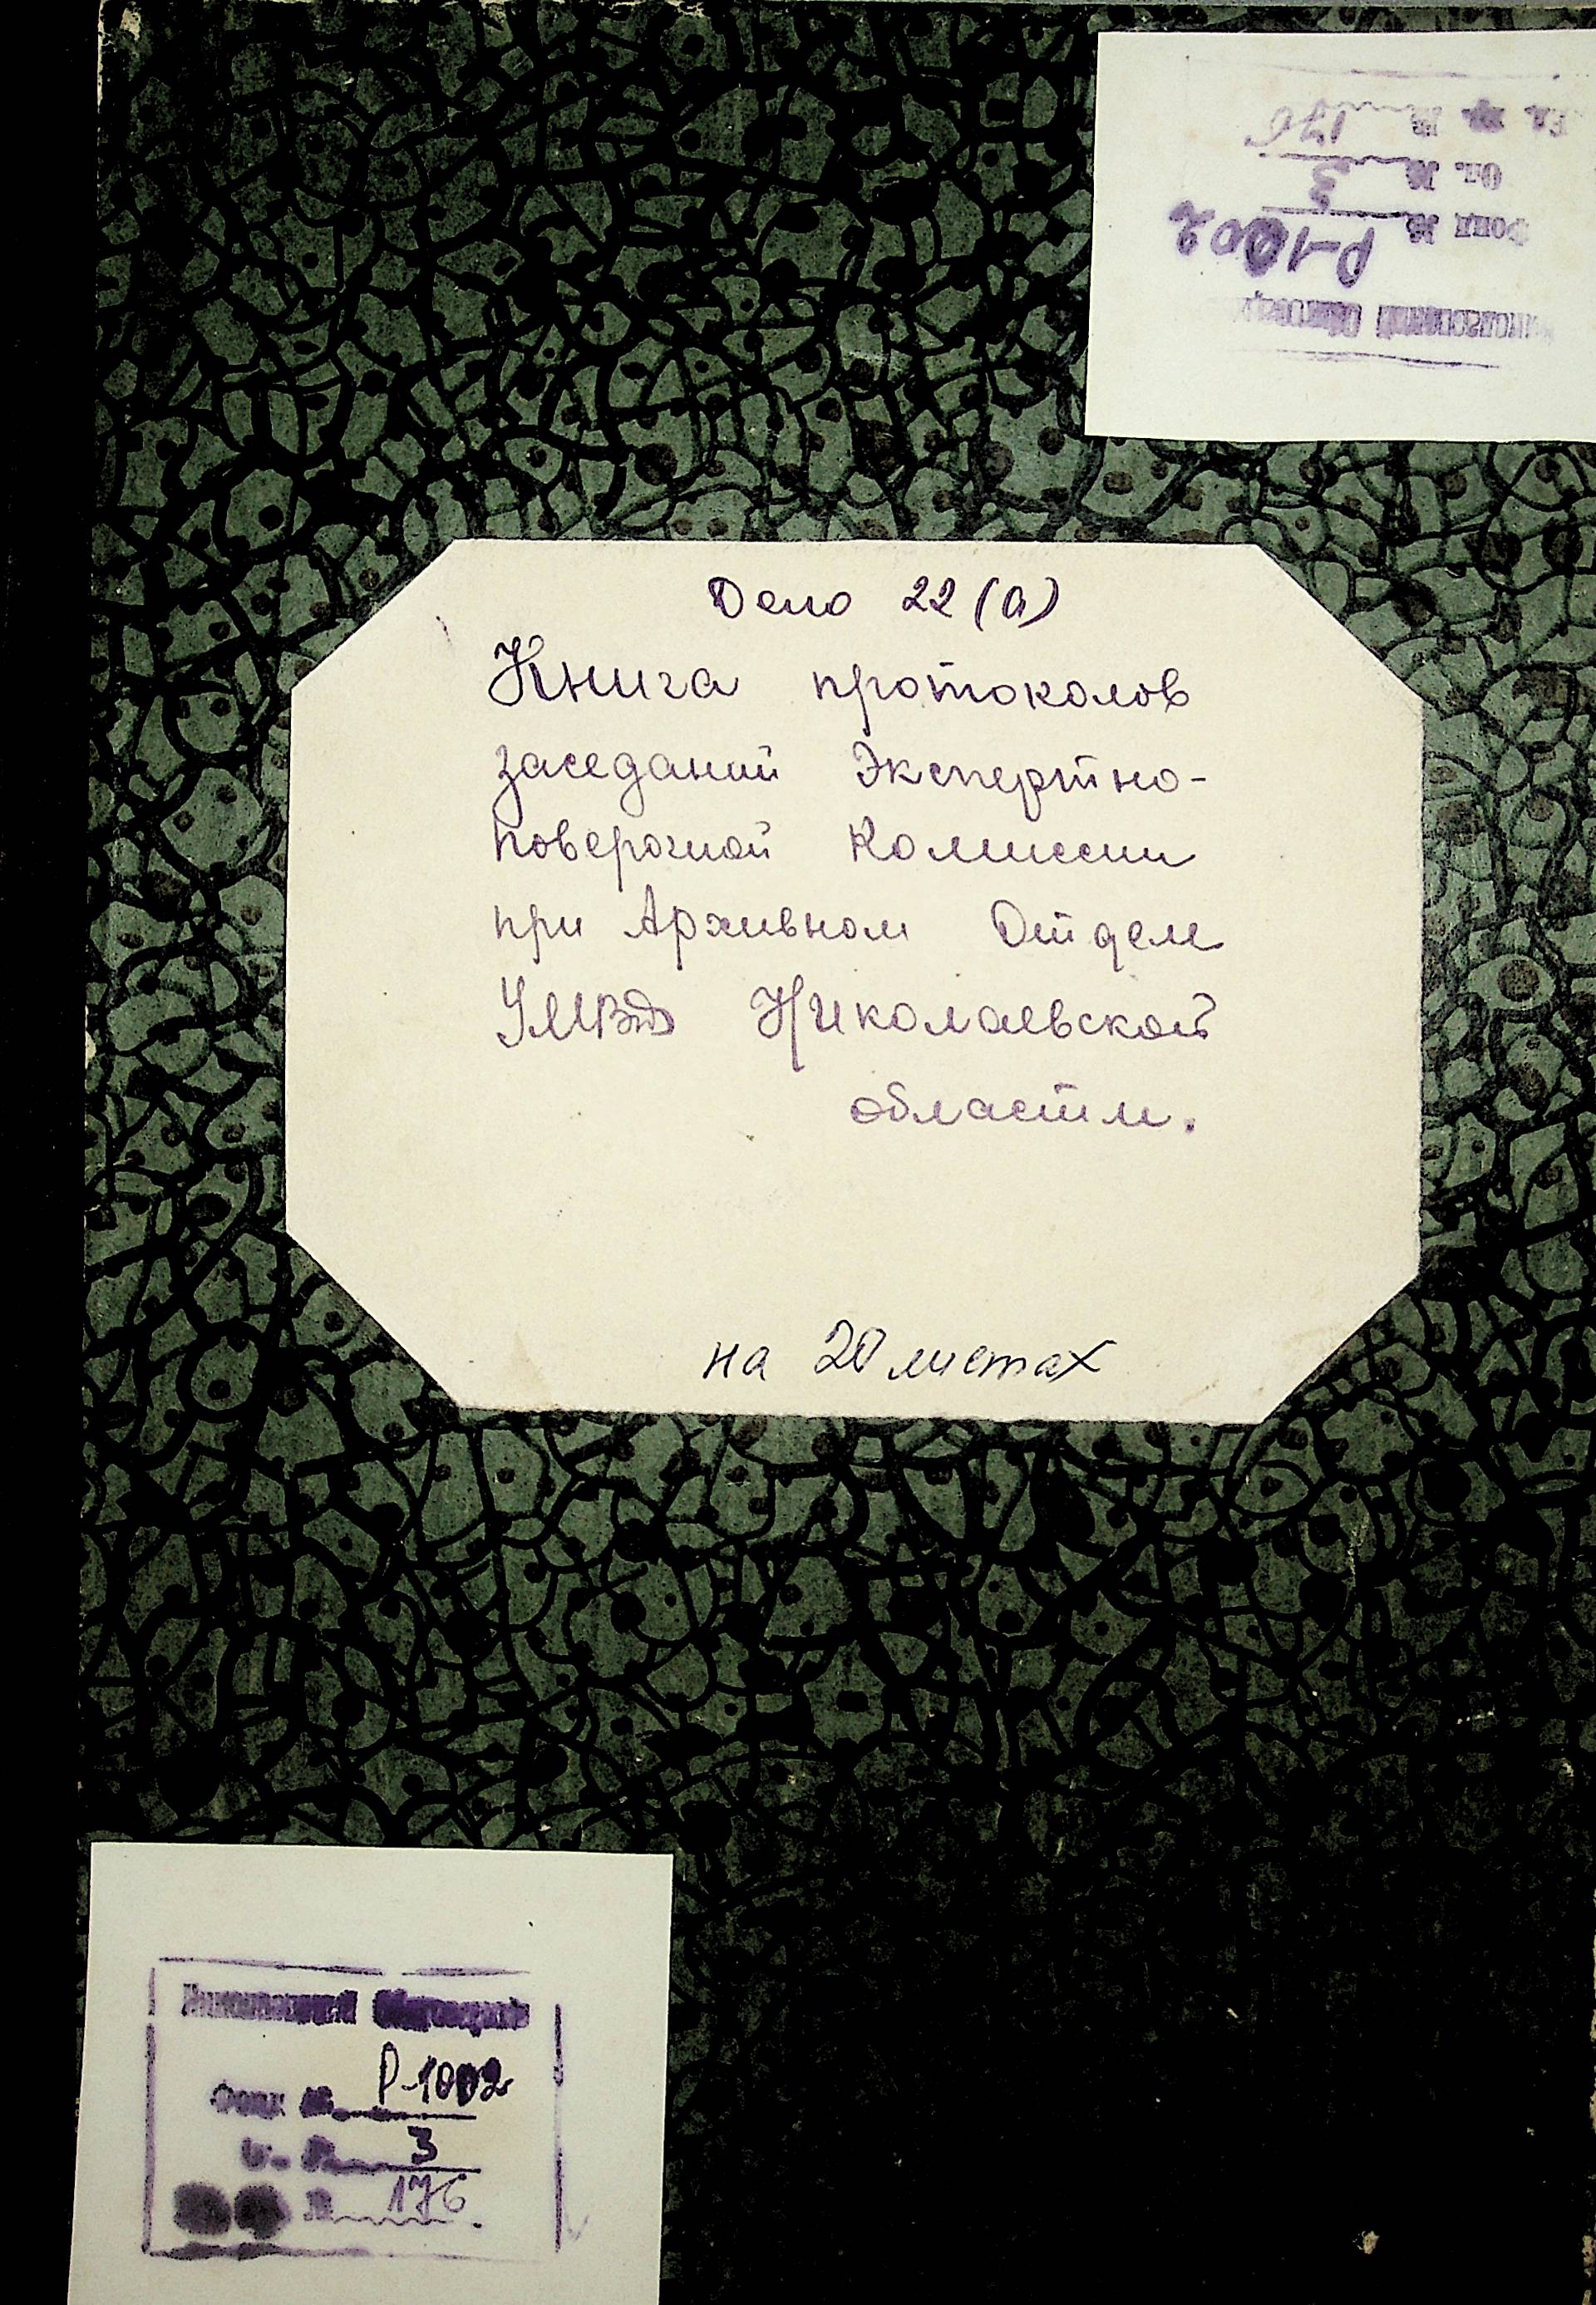 Ед. хр. № 176
Оп. № 3
Фонд № Р-1002
Дело 22 (а)
Книга протоколов
заседаний Экспертно-
поверочной Комиссии
при Архивном Отделе
УМВД Николаевской
области.
на 20 листах
Николаевский Облгосархив
Фонд № Р-1002
3
№ 176